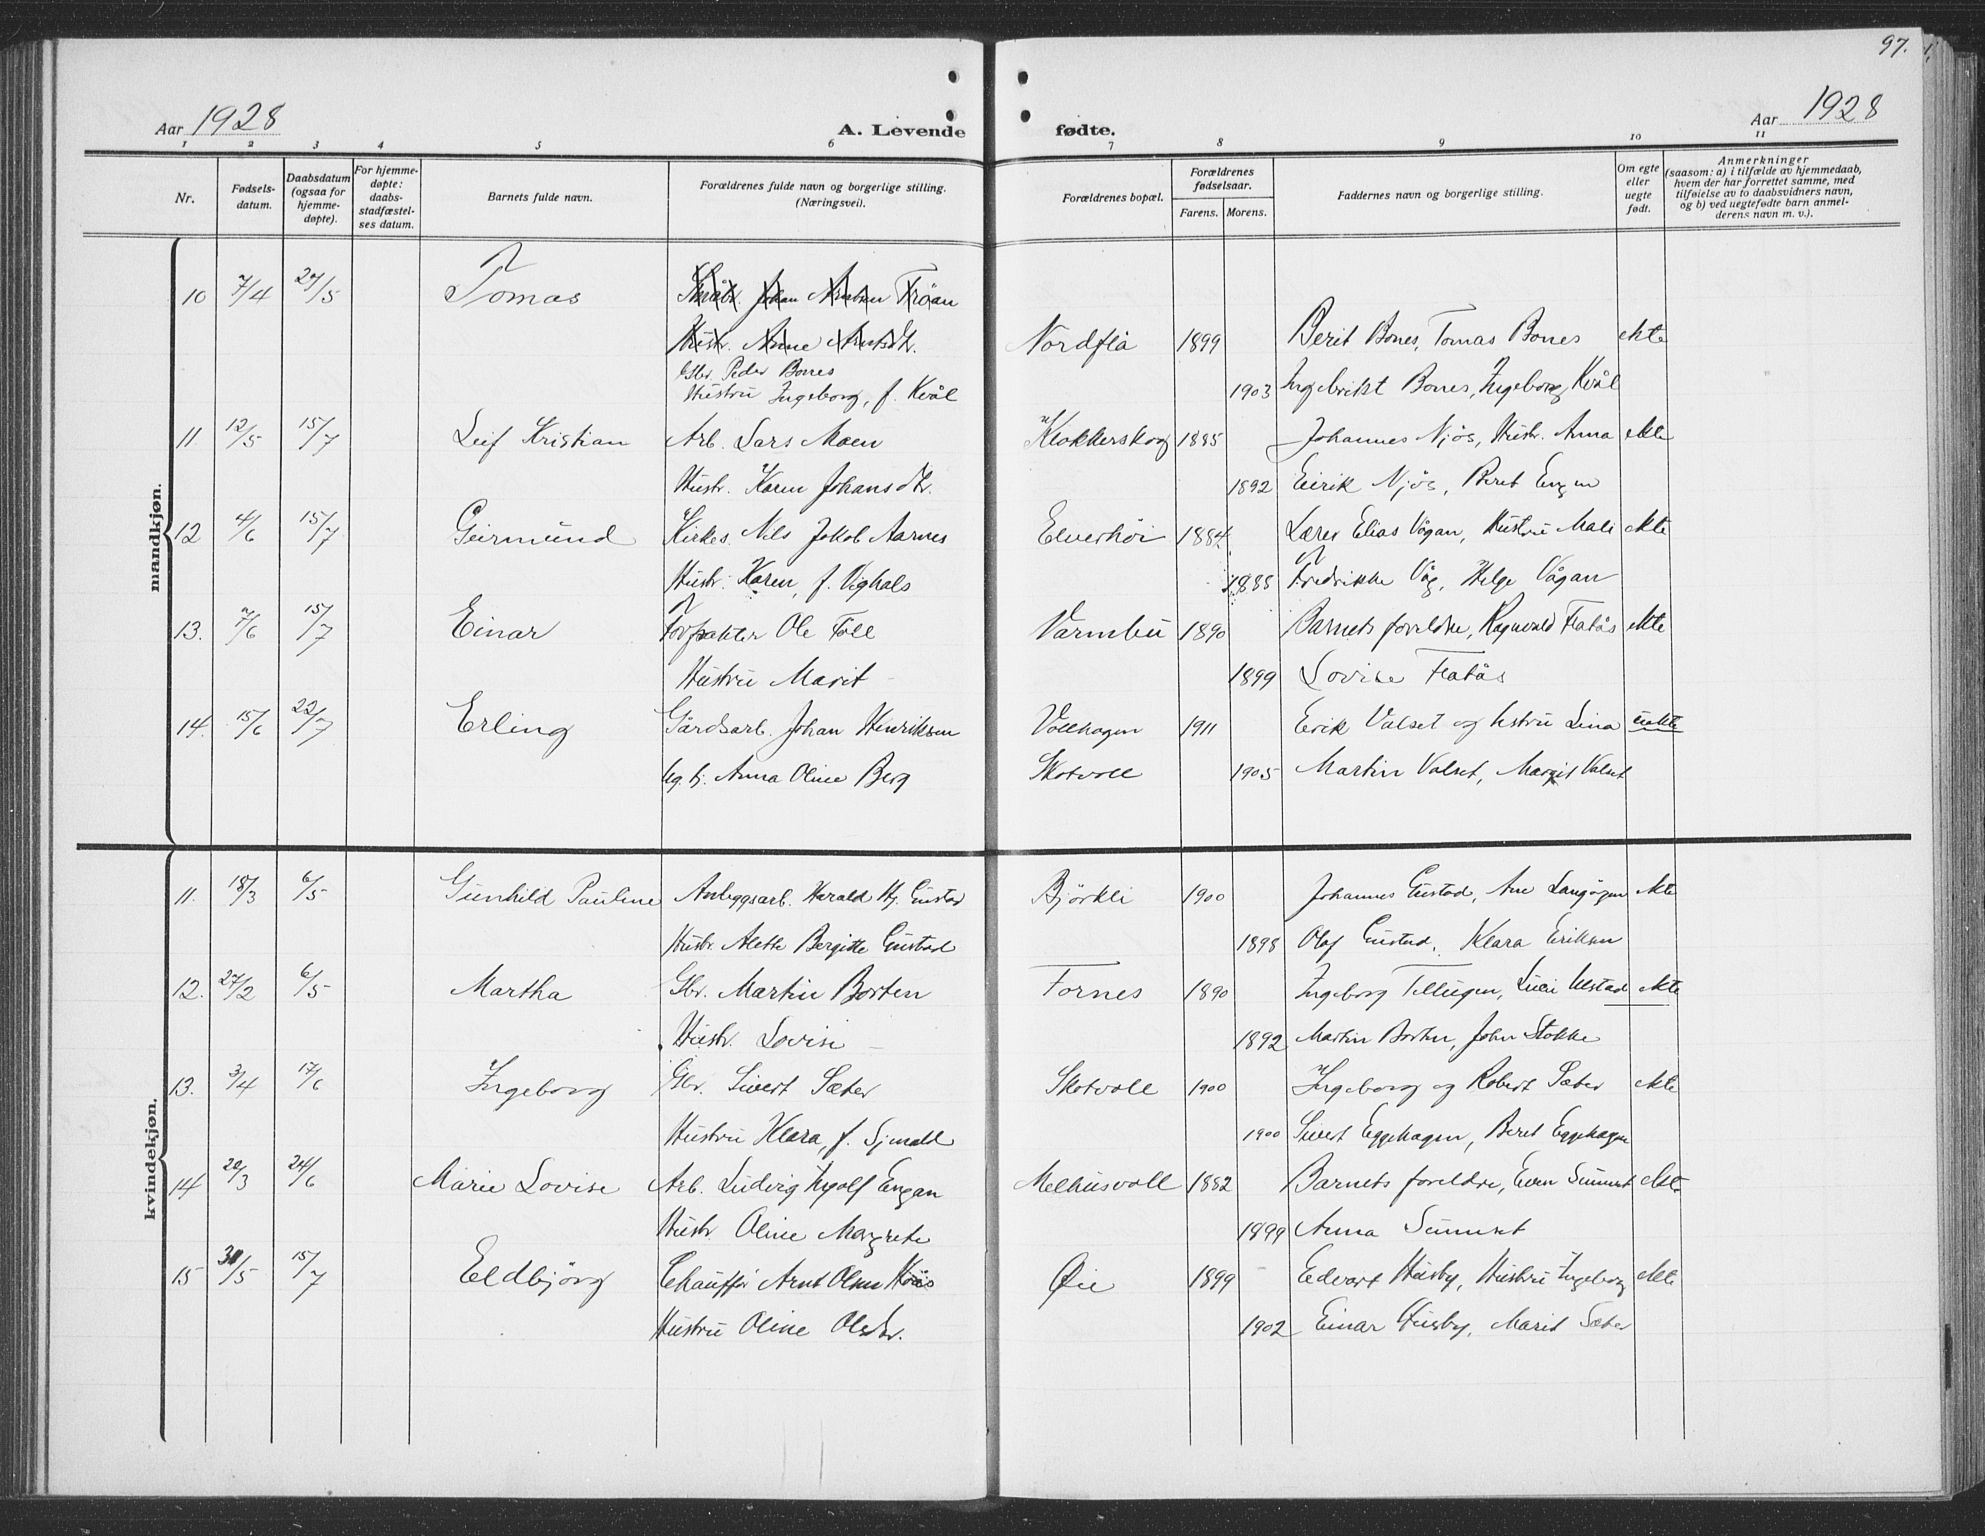 97.
Aar 1928
A. Levende fødte.
Aar 1928
1 2 3 4 5 6 7 8 9 10 11
Nr.
Fødsels-
datum.
Daabsdatum
(ogsaa for
hjemme-
døpte).
For hjemme-
døpte:
daabs-
stadfæstel-
ses datum.
Barnets fulde navn.
Forældrenes fulde navn og borgerlige stilling.
(Næringsvei).
Forældrenes bopæl.
Forældrenes
fødselsaar.
Farens. Morens.
Faddernes navn og borgerlige stilling.
Om egte
eller
uegte
født.
Anmerkninger
(saasom: a) i tilfælde av hjemmedaab,
hvem der har forrettet samme, med
tilføielse av to daabsvidners navn,
og b) ved uegtefødte barn anmel-
derens navn m. v.).
mandkjøn.
10 7/4 27/5 Tomas Johan Trøan
Hustr. Anne
Nordflå 1899 Berit Bones, Tomas Bones ekte
Gbr. Peder Bones
Hustru Ingeborg, f. Kvål 1903 Ingebrikt Bones, Ingeborg Kvål
11. 12/5 15/7 Leif Kristian Arb. Lars Moen Klokkerskog 1885 Johannes Njøs, Hustr. Anna ekte
Hustr. Karen Johansdtr. 1892 Eirik Njøs, Beret Engen
12 4/6 15/7 Geirmund Kirkes. Nils Jakob Aarnes Elverhøi 1884 Lærer Elias Vågan, Hustru Mali ekte
Hustr. Karen, f. Vighals 1885 Fredrikke Våg, Helge Vågan
13. 7/6 15/7 Einar Forpakter Ole Foll Varmbu 1890 Barnets foreldre, Ragnvald Flatås ekte
Hustru Marit 1899 Lovise Flatås
14. 15/6 22/7 Erling Gårdsarb. Johan Henriksen Vollhagen 1911 Erik Valset og hustru Lina uekte
ug. tj. Anna Oline Berg Skotvoll 1905 Martin Valset, Margit Valset
kvindekjøn.
11. 18/3 6/5 Gunhild Pauline Anleggsarb. Harald Hj. Gustad Bjørkli 1900 Johannes Gustad, Ane Langørgen ekte
Hustr. Alette Bergitte Gustad 1898 Olaf Gustad, Klara Eriksen
12. 27/2 6/5 Martha Gbr. Martin Borten Fornes 1890 Ingeborg Tellugen, Ulstad ekte
Hustr. Lovise 1892 Martin Borten, John Stokke
13. 3/4 17/6 Ingeborg Gbr. Sivert Sæter Skotvoll 1900 Ingeborg og Robert Sæter ekte
Hustru Klara, f. 1900 Sivert Eggehagen, Beret Eggehagen
14 20/3 24/6 Marie Lovise Arb. Ludvig Ingolf Engan Melhusvoll 1882 Barnets foreldre, Even Sunnset ekte
Hustr Oline Margrete 1899 Anna Sunnset
15 31/5 15/7 Eldbjørg Chauffør Arnt Olsen Øie 1899 Edvart Husby, Hustru Ingeborg ekte
Hustru Oline Olsdtr. 1902 Einar Husby, Marit Sæter